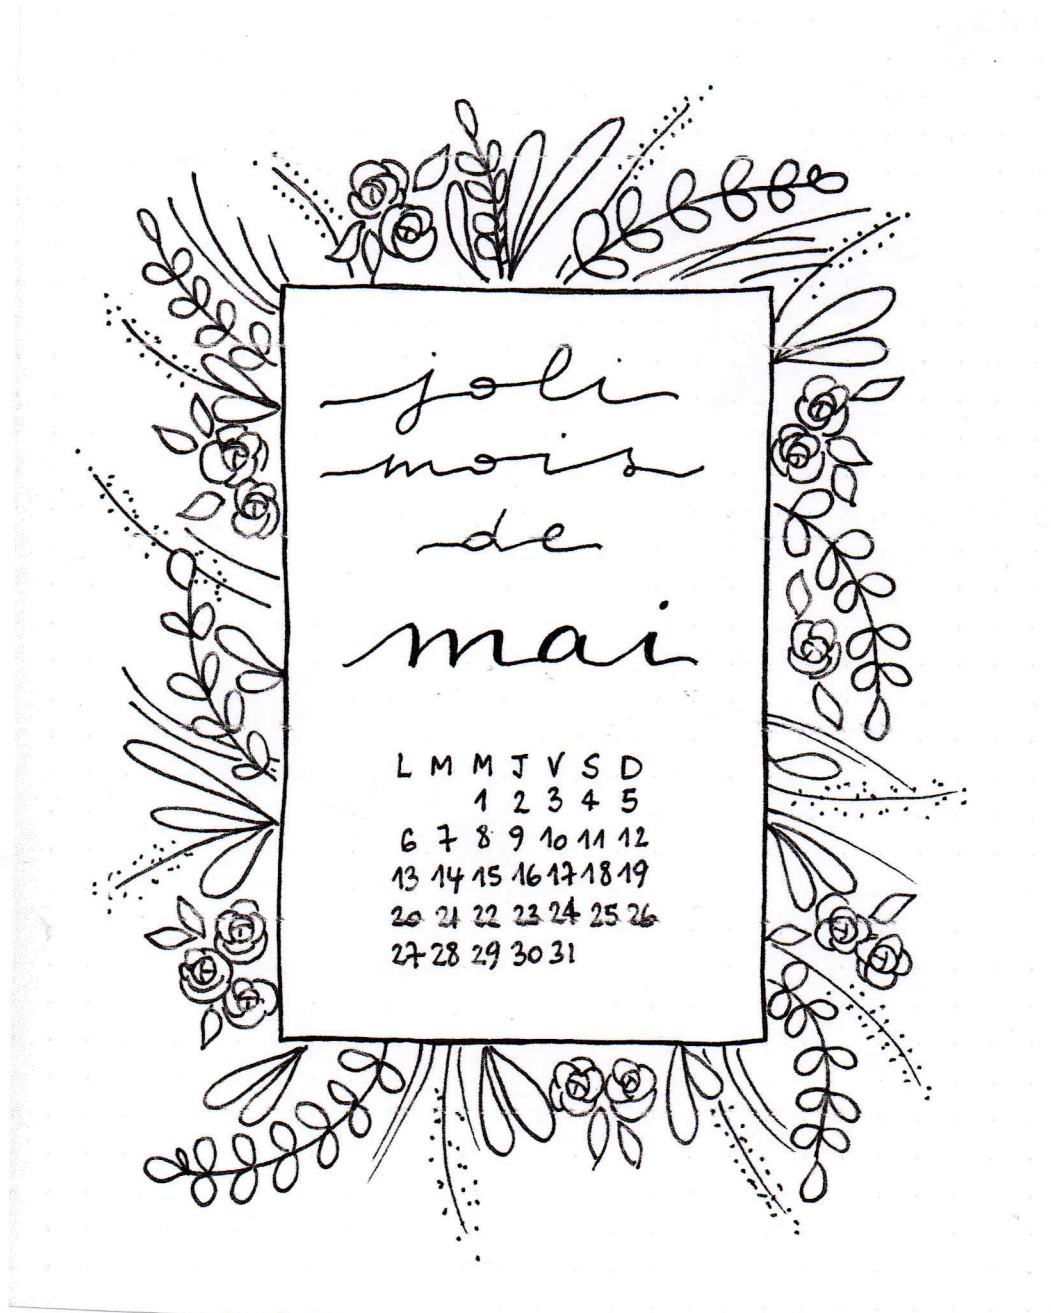 joli
mois
de
mai
L M M J V S D
1 2 3 4 5
6 7 8 9 10 11 12
13 14 15 16 17 18 19
20 21 22 23 24 25 26
27 28 29 30 31